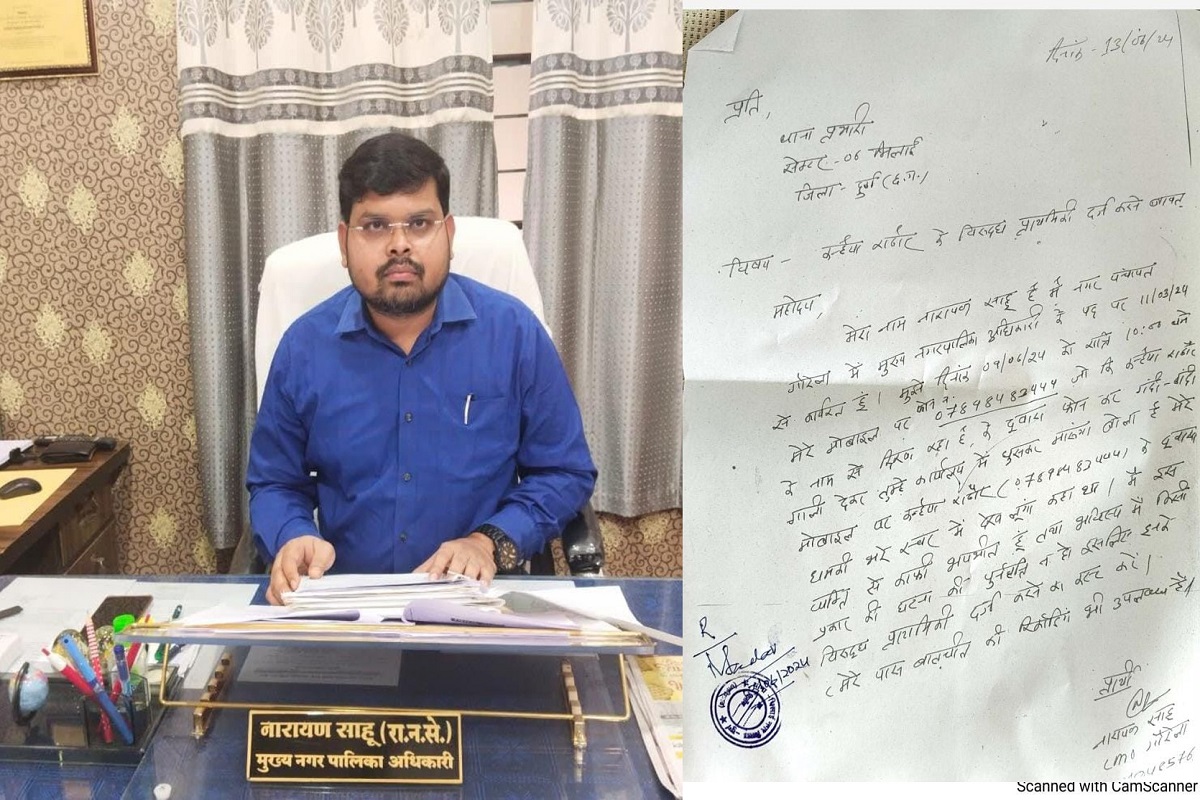 नारायण साहू (रा.न.से.)
मुख्य नगर पालिका अधिकारी
दिनांक - 13/06/24
प्रति,
थाना प्रभारी
सेक्टर - 06 भिलाई
जिला - दुर्ग (छ.ग.)
विषय - कन्हैया राठौर के विरूद्ध प्राथमिकी दर्ज करने बाबत्
महोदय,
मेरा नाम नारायण साहू है मैं नगर पंचायत
गौरेला में मुख्य नगरपालिका अधिकारी के पद पर 11/03/24
से कार्यरत हूं । मुझे दिनांक 09/06/24 को रात्रि 10:00 बजे
मेरे मोबाइल पर फोन नं. 07898482444 जो कि कन्हैया राठौर
के नाम से दिख रहा है, के द्वारा फोन कर गंदी-गंदी
गाली देकर तुम्हे कार्यालय में घुसकर मारूंगा बोला है मेरे
मोबाइल पर कन्हैया राठौर (07898482444) के द्वारा
धमकी भरे स्वर में देख लूंगा कहा था । मैं इस
व्यक्ति से काफी भयभीत हूं तथा भविष्य में किसी
प्रकार की घटना की पुनरावृत्ति न हो इसलिए इनके
विरूद्ध प्राथमिकी दर्ज करने का कष्ट करें ।
(मेरे पास बातचीत की रिकॉर्डिंग भी उपलब्ध है)
R
प्रार्थी
नारायण साहू
CMO गौरेला
Scanned with CamScanner